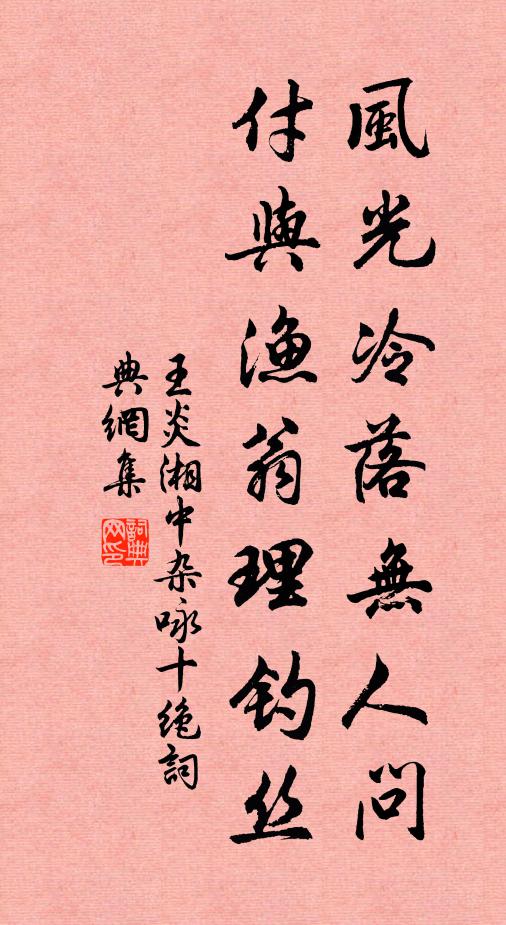 風光冷落無人問
付與漁翁理钓丝
王炎湘中杂咏十绝詞
典網集
詞典网印